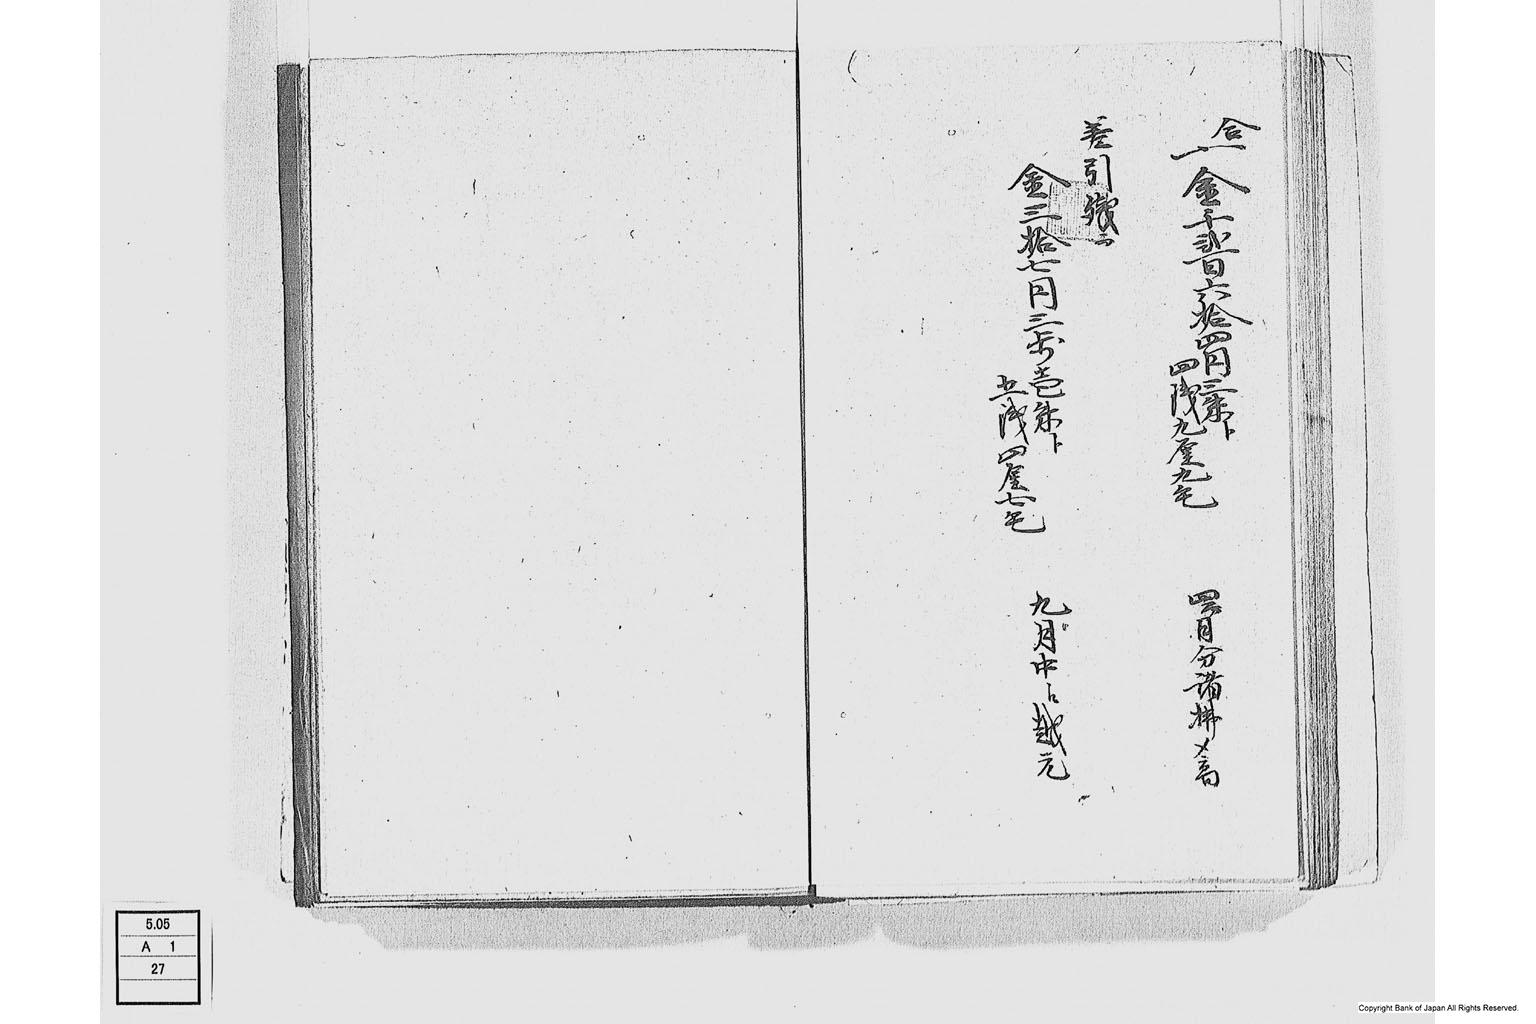 合
一金千弐百六拾四円三朱ト
四匁九厘九毛
四月分諸拂〆高
差引残而
金三拾七円三歩壱朱ト
五匁四厘七毛
九月中ニ越元
5.05
A 1
27
Copyright Bank of Japan All Rights Reserved.